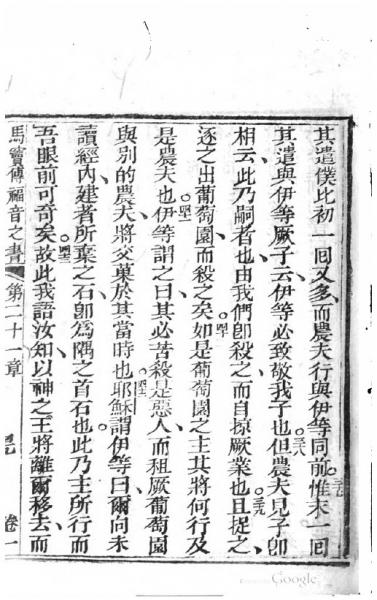 其遣僕比初一回又多、而農夫行與伊等同前。惟末一回
其遣與伊等厥子、云、伊等必致敬我子也。但農夫見子卽
相云、此乃嗣者也、由我們卽殺之、而自掠厥業也。且捉之、
逐之出葡萄園而殺之矣。如是葡萄園之主、其將何行及
是農夫也。伊等謂之曰、其必苦殺是惡人、而租厥葡萄園
與別的農夫、將交菓於其當時也。耶穌謂伊等曰、爾向未
讀經內、建者所棄之石、卽為隅之首石也、此乃主所行、而
吾眼前可奇矣。故此我語汝知、以神之王將離爾移去、而
馬竇傳福音之書 第二十一章 卷一
Google